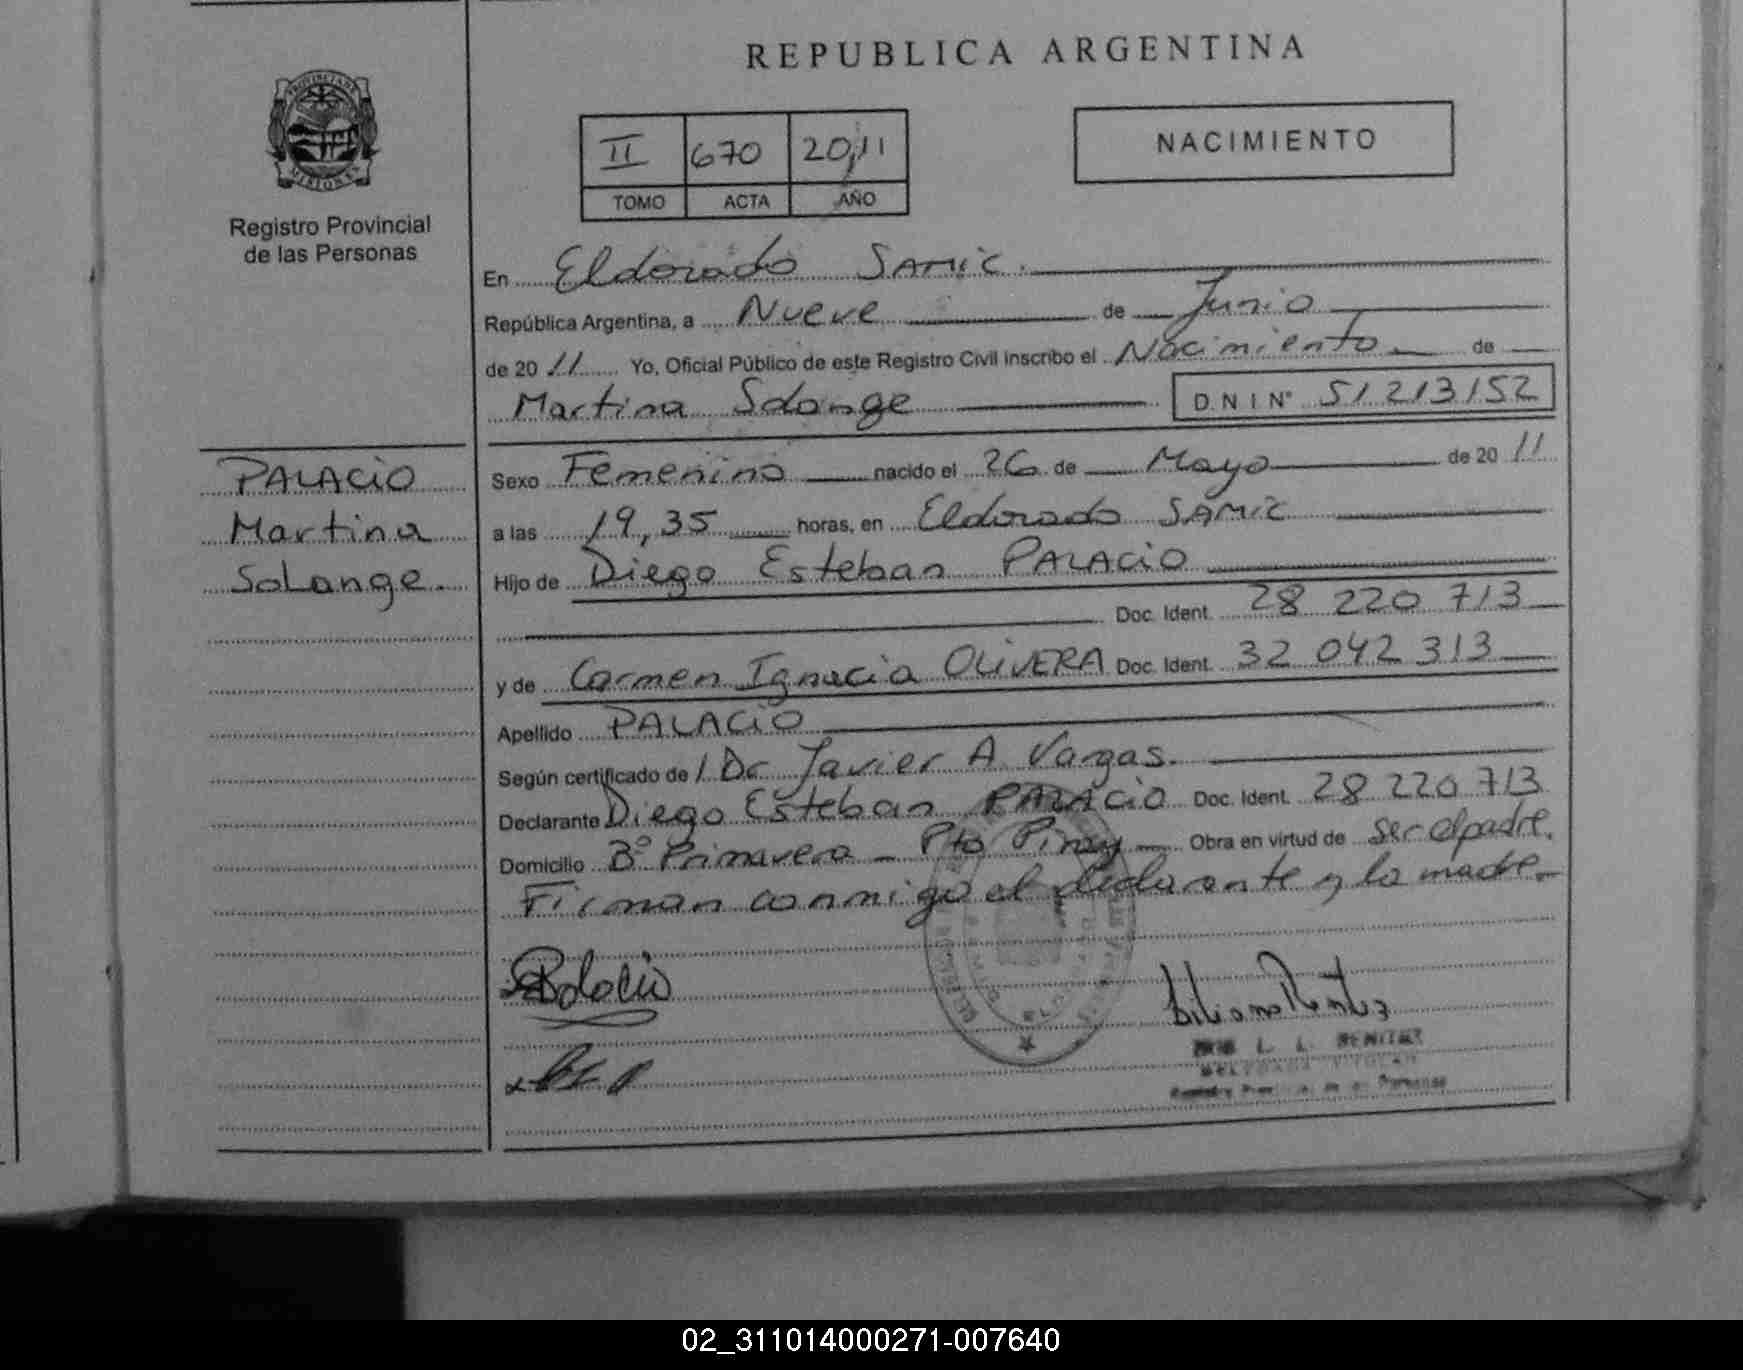 REPUBLICA ARGENTINA
PROVINCIA DE
MISIONES
Registro Provincial
de las Personas
II 670 2011
TOMO ACTA AÑO
NACIMIENTO
En Eldorado SAMIC.
República Argentina, a Nueve de Junio
de 2011 Yo, Oficial Público de este Registro Civil inscribo el Nacimiento de
Martina Solange D N I Nº 51 213 152
PALACIO
Martina
Solange.
Sexo Femenino nacido el 26 de Mayo de 2011
a las 19,35 horas, en Eldorado SAMIC
Hijo de Diego Esteban PALACIO
Doc. Ident. 28 220 713
y de Carmen Ignacia OLIVERA Doc. Ident. 32 042 313
Apellido PALACIO
Según certificado de Dr Javier A Vargas.
Declarante Diego Esteban PALACIO Doc. Ident. 28 220 713
Domicilio Bº Primavera - Pto Piray Obra en virtud de ser el padre.
Firman conmigo el declarante y la madre.
L. BENITEZ
02_311014000271-007640